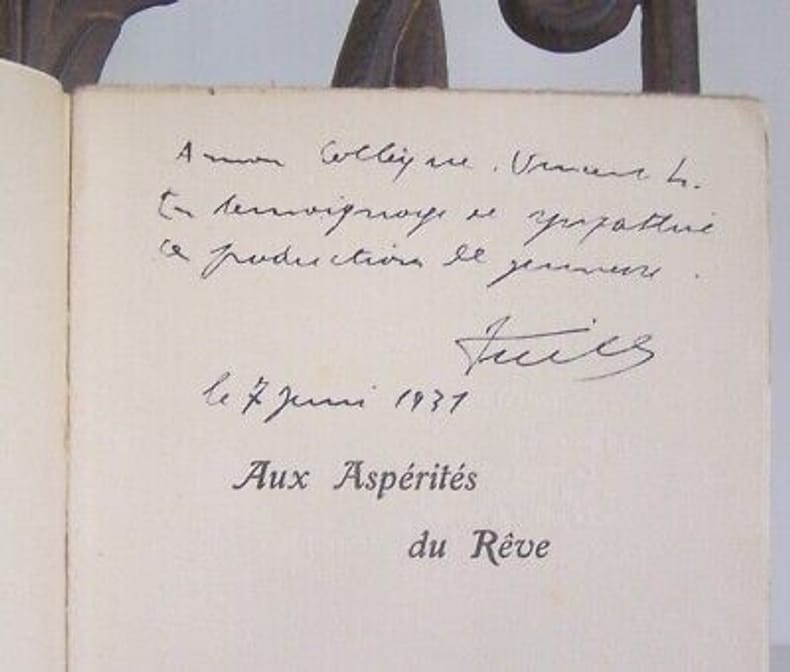 A mon Collègue. Vincent h.
En temoignage de sympathie
ces productions de jeunesse.
le 7 Juin 1931
Aux Aspérités
du Rêve